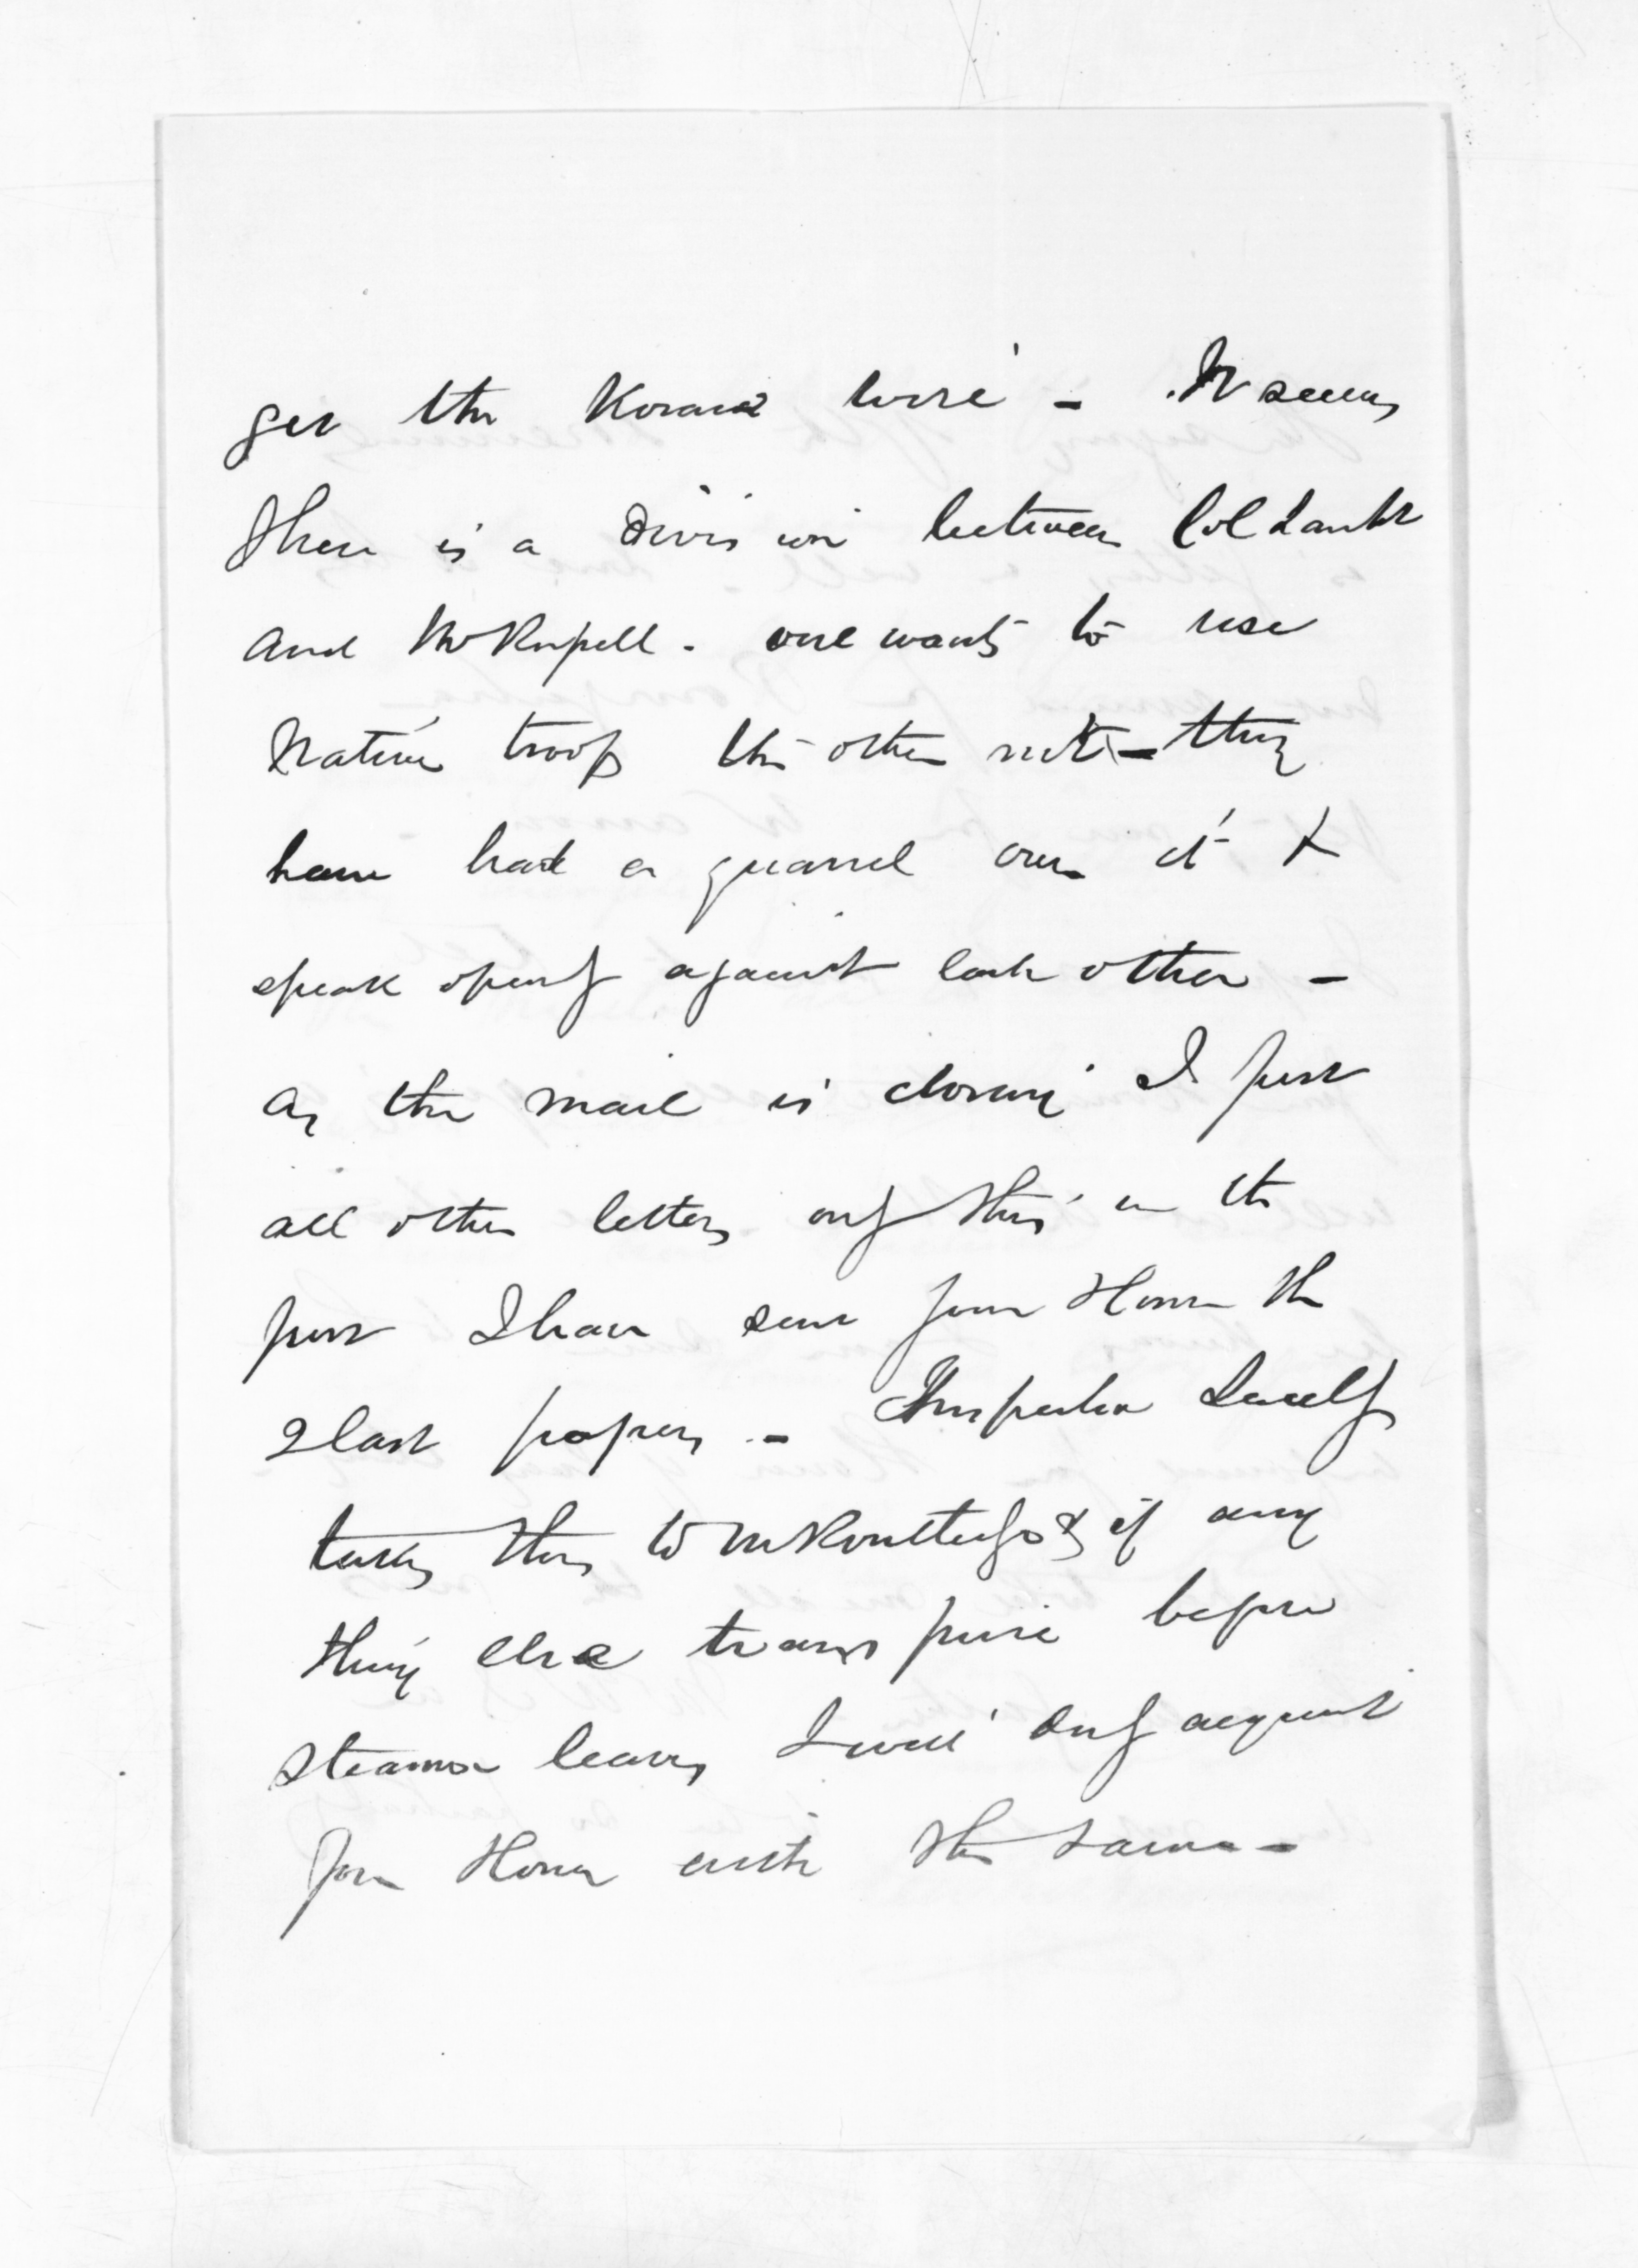 get the Koran loose - It seems
there is a division between Col Lambt
and Mr Russell. one wants to use
Native troops the other not - they
have had a quarrel over it &
speak openly against each other -
as the mail is closing I post
all other letters only this in the
post I have sent your Honor the
2 last papers - Inspector
takes this to Mr & if any
thing else transpire before
steamer leaves I will only acquaint
your Honor with the same -